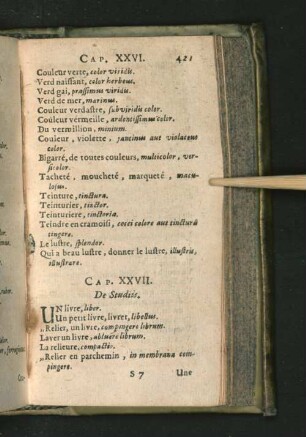 CAP. XXVI. 421
Couleur verte, color viridis.
Verd naissant, color herbeus.
Verd gai, prassinus viridis.
Verd de mer, marinus.
Couleur verdastre, subviridis color.
Couleur vermeille, ardentissimus color.
Du vermillion, minium.
Couleur, violette, jantinus aut violaceus
color.
Bigarré, de toutes couleurs, multicolor, ver-
sicolor.
Tacheté, moucheté, marqueté, macu-
losus.
Teinture, tinctura.
Teinturier, tinctor.
Teinturiere, tinctoria.
Teindre en cramoisi, cocci colore aut tinctura
tingere.
Le lustre, splendor.
Qui a beau lustre, donner le lustre, illustris,
illustrare.
CAP. XXVII.
De Studiis.
UN livre, liber.
Un petit livre, livret, libellus.
„Relier, un livre, compingere librum.
Laver un livre, abluere librum.
La relieure, compactio.
„Relier en parchemin, in membrana com-
pingere.
S 7 Une